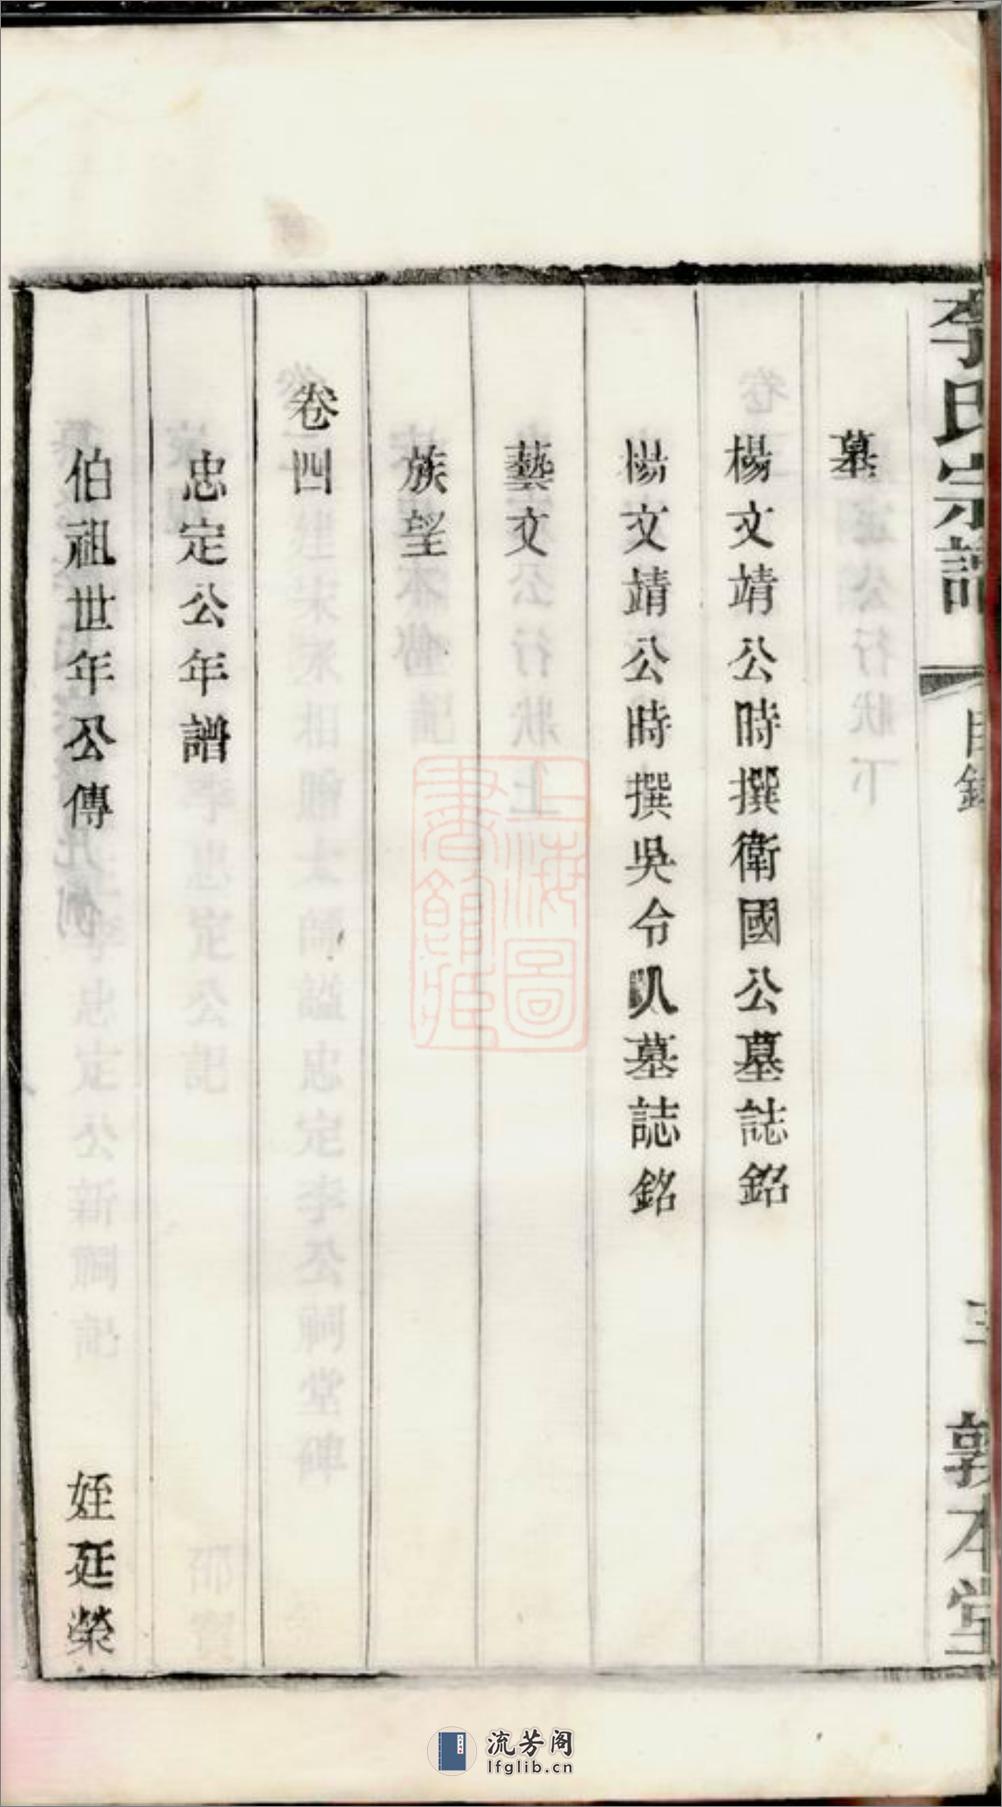 李氏宗譜
目錄
三
敦本堂
墓
楊文靖公時撰衛國公墓誌銘
楊文靖公時撰吳令人墓誌銘
藝文
族望
卷四
忠定公年譜
伯祖世年公傳 姪廷榮
上海圖
書館藏
流芳阁
lfglib.cn